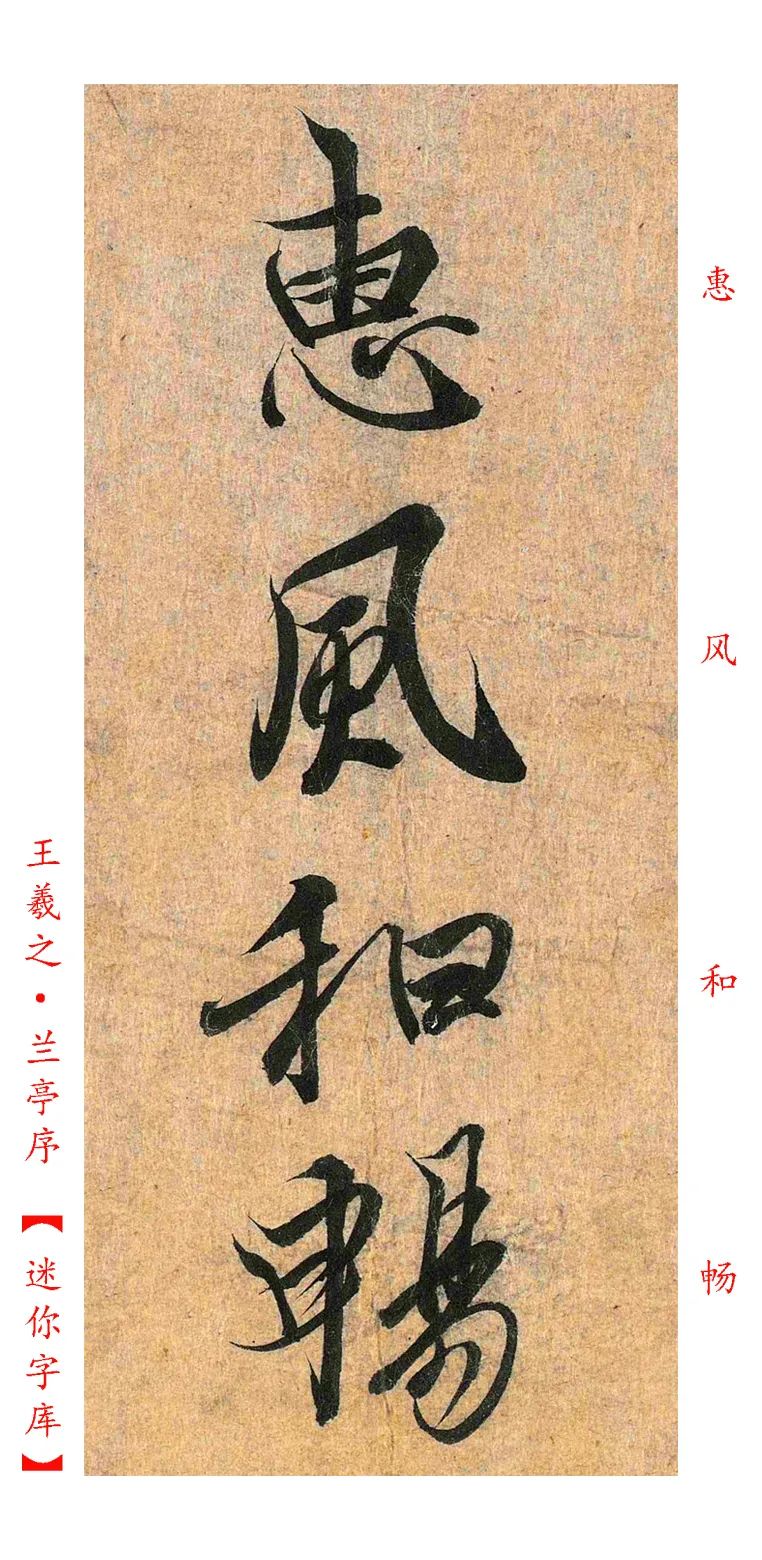 惠風和暢
惠风和畅
王羲之·兰亭序【迷你字库】